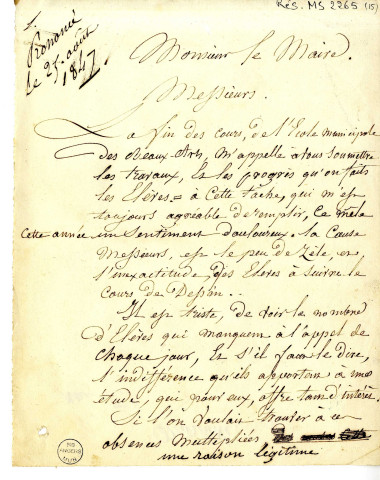 Rés. MS 2265 (15)
Prononcé
le 25 août
1847
Monsieur le Maire.
Messieurs.
La fin des cours, de l'Ecole municipale
des Beaux-Arts, m'appelle à vous soumettre
les travaux, et les progrès qu'on faits
les Elèves = à cette tâche, qui m'est
toujours agréable de remplir, se mele
cette année un sentiment douloureux. la cause
Messieurs, est le peu de zèle, et
l'inexactitude, des Elèves à suivre le
cours de Dessin..
Il est triste, de voir le nombre
d'Elèves qui manquent à l'appel de
chaque jour, et s'il faut le dire,
l'indifférence qu'ils apportent à une
étude, qui pour eux, offre tant d'intérêt.
Si l'on voulait trouver à ces
absences multipliées
une raison légitime